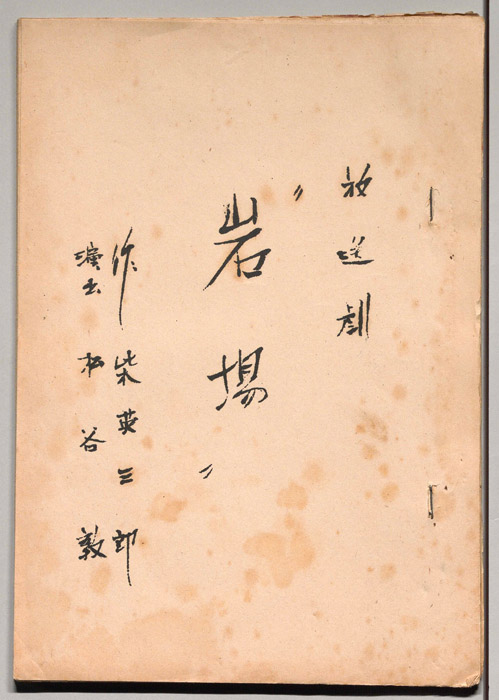 放送劇
〃岩場〃
作 柴英三郎
演出 松谷敦